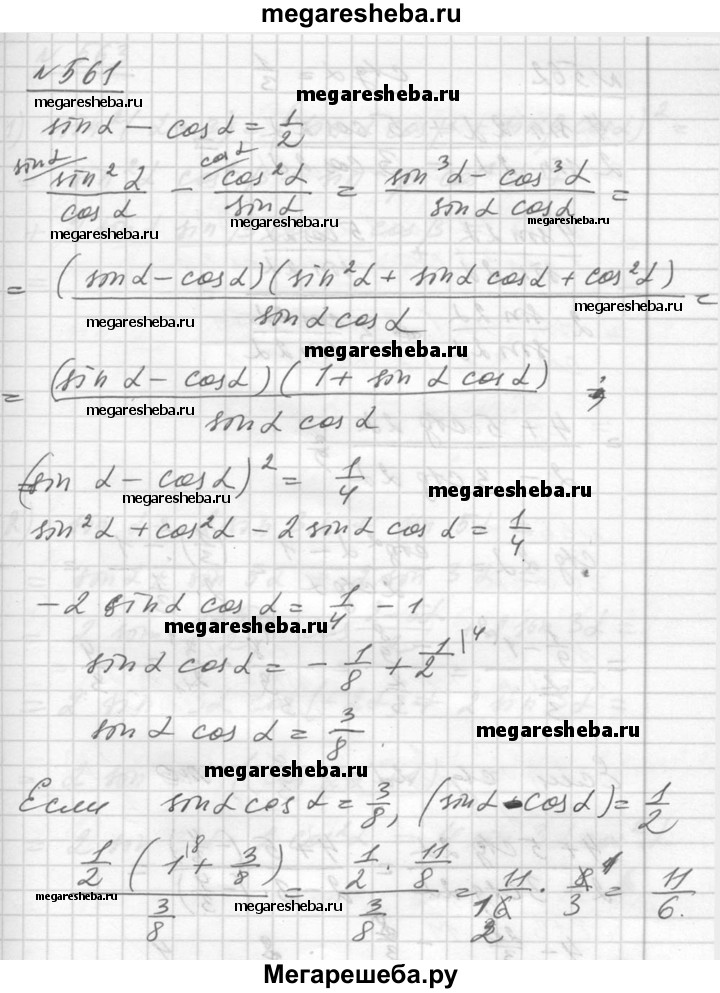 megaresheba.ru
№561
megaresheba.ru
megaresheba.ru
sinα − cosα = 1/2
sinα/ sin²α/cosα − cosα/ cos²α/sinα = (sin³α − cos³α)/(sinα cosα) =
megaresheba.ru megaresheba.ru megaresheba.ru
= (sinα − cosα)(sin²α + sinα cosα + cos²α)/(sinα cosα) =
megaresheba.ru megaresheba.ru
megaresheba.ru
= (sin α − cosα)(1 + sin α cosα)/(sinα cosα)
megaresheba.ru
(sin α − cosα)² = 1/4
megaresheba.ru megaresheba.ru
sin²α + cos²α − 2 sinα cosα = 1/4
−2 sinα cosα = 1/4 − 1
megaresheba.ru
sinα cosα = −1/8 + 1/2 |4
sinα cosα = 3/8
megaresheba.ru
megaresheba.ru
Если sinα cosα = 3/8, (sinα − cosα) = 1/2
1/2 (1|8 + 3/8) / 3/8 = 1/2 · 11/8 / 3/8 = 11/16 · 8/3 = 11/6.
megaresheba.ru megaresheba.ru megaresheba.ru
Мегарешеба.ру